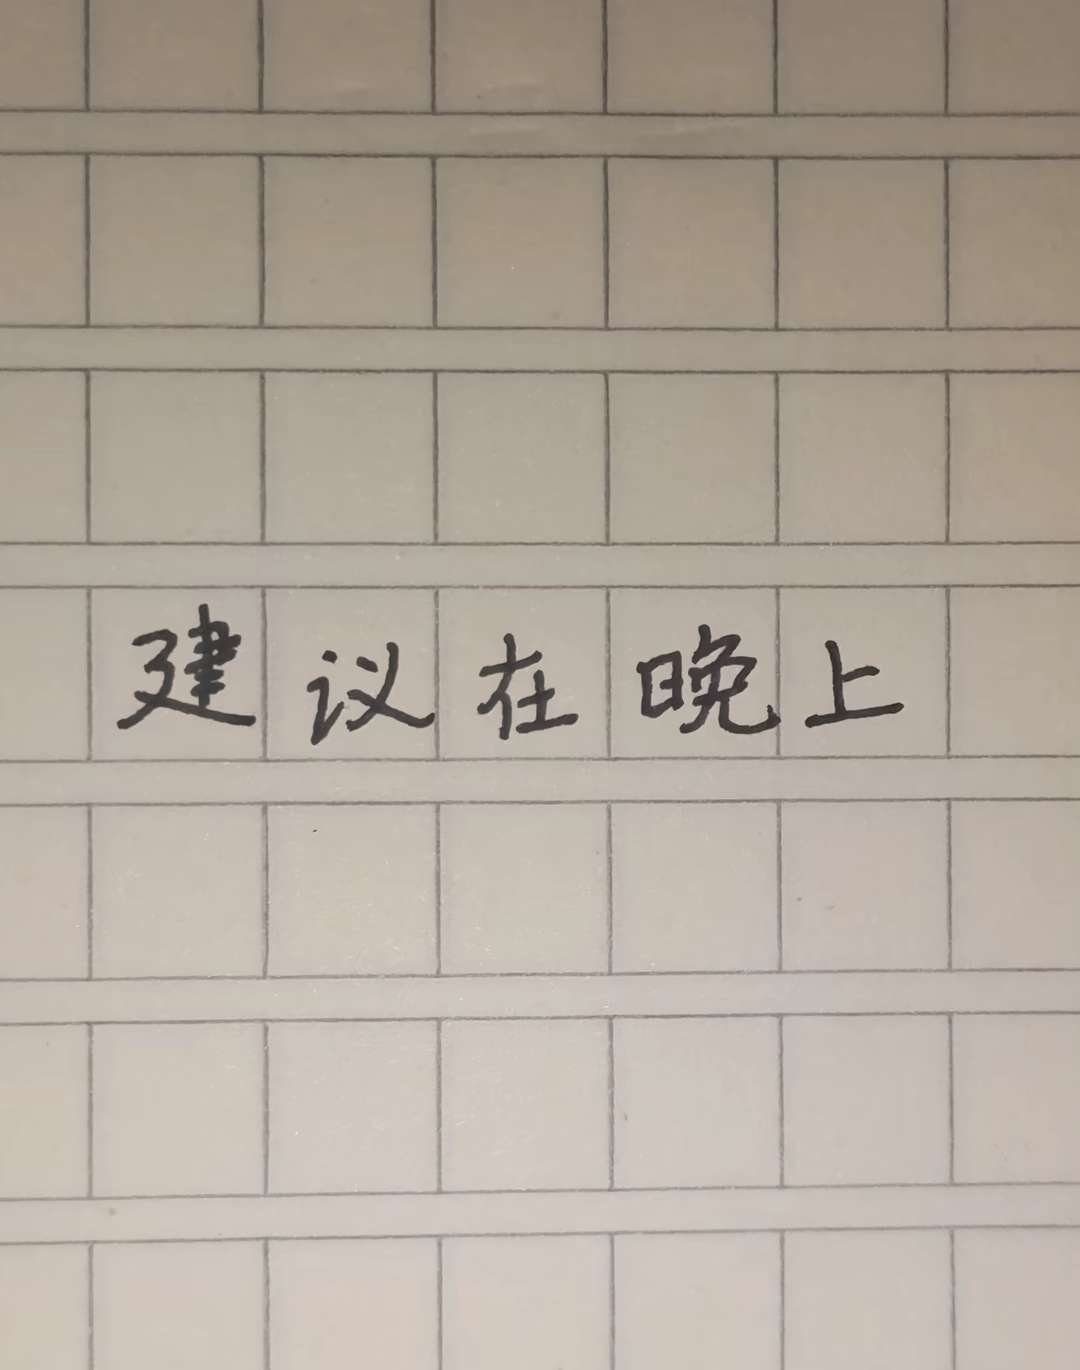 建议在晚上